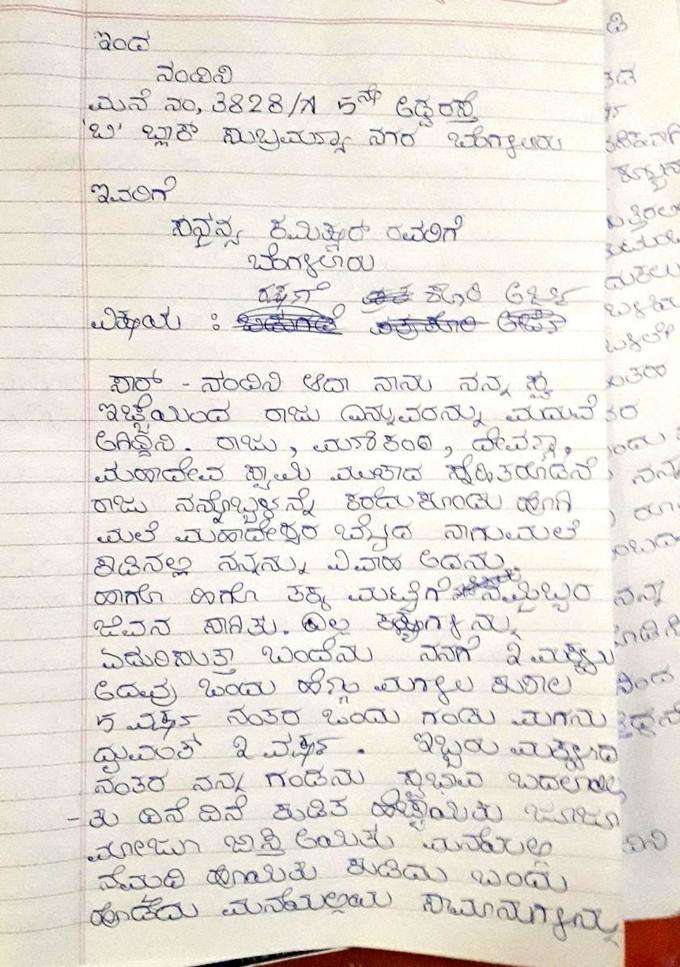 ಇಂದ
ನಂದಿನಿ
ಮನೆ ನಂ, 3828/A 5ನೇ ಅಡ್ಡರಸ್ತೆ
'ಬಿ' ಬ್ಲಾಕ್ ಸುಬ್ರಮಣ್ಯ ನಗರ ಬೆಂಗಳೂರು
ಇವರಿಗೆ
ಕಮಿಷ್ನರ್ ರವರಿಗೆ
ಬೆಂಗಳೂರು
ರಕ್ಷಣೆ ಕೋರಿ ಅರ್ಜಿ
ವಿಷಯ :
ಸಾರ್ - ನಂದಿನಿ ಆದಾ ನಾನು ನನ್ನ ಸ್ವ
ಇಚ್ಛೆಯಿಂದ ರಾಜು ಎನ್ನುವರನ್ನು ಮದುವೆ
ಆಗಿದ್ದಿನಿ. ರಾಜು, ದೇವಣ್ಣ,
ಮಹಾದೇವ ಸ್ವಾಮಿ ಮುಂತಾದ ಸ್ನೇಹಿತರೊಡನೆ
ರಾಜು ನನ್ನೊಬ್ಬಳನ್ನೆ ಕರೆದುಕೊಂಡು ಹೋಗಿ
ಮಲೆ ಮಹಾದೇಶ್ವರ ಬೆಟ್ಟದ ನಾಗುಮಲೆ
ಕಾಡಿನಲ್ಲಿ ನನ್ನನ್ನು ವಿವಾಹ ಆದನು
ಹಾಗೋ ಹೀಗೋ ತಕ್ಕ ಮಟ್ಟಿಗೆ ನಮ್ಮಿಬ್ಬರ
ಜೀವನ ಸಾಗಿತು. ಎಲ್ಲ ಕಷ್ಟಗಳನ್ನು
ಎದುರಿಸುತ್ತಾ ಬಂದೆನು ನನಗೆ 2 ಮಕ್ಕಳು
ಆದವು ಒಂದು ಹೆಣ್ಣು ಮಗಳು ಕುಶಾಲ
5 ವರ್ಷ ನಂತರ ಒಂದು ಗಂಡು ಮಗನು
2 ವರ್ಷ. ಇಬ್ಬರು ಮಕ್ಕಳಾದ
ನಂತರ ನನ್ನ ಗಂಡನು ಸ್ವಭಾವ ಬದಲಾಯಿ
-ತು ದಿನೆ ದಿನೆ ಕುಡಿತ ಹೆಚ್ಚಾಯಿತು ಜೂಜು
ಮೋಜು ಜಾಸ್ತಿ ಆಯಿತು ಮನೆಯಲ್ಲಿ
ನೆಮದಿ ಹೋಯಿತು ಕುಡಿದು ಬಂದು
ಹೊಡೆದು ಮನೆಯಲ್ಲಿಯ ಸಾಮಾನುಗಳನ್ನು